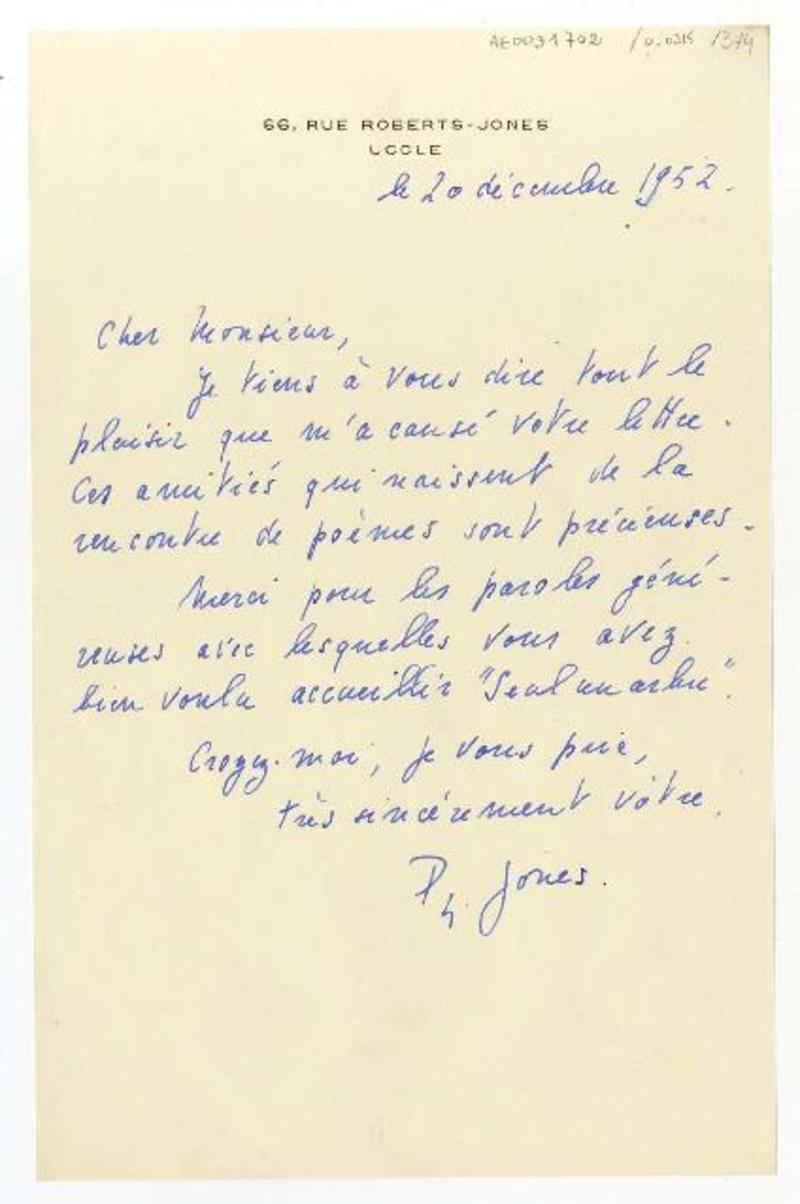 AE0031702 /0.0315 /374
66, RUE ROBERTS-JONES
UCCLE
le 20 décembre 1952.
Cher Monsieur,
Je tiens à vous dire tout le
plaisir que m'a causé votre lettre.
Ces amitiés qui naissent de la
rencontre de poèmes sont précieuses.
Merci pour les paroles géné-
reuses avec lesquelles vous avez
bien voulu accueillir "Seul un arbre".
Croyez-moi, je vous prie,
très sincèrement vôtre.
Ph. Jones.